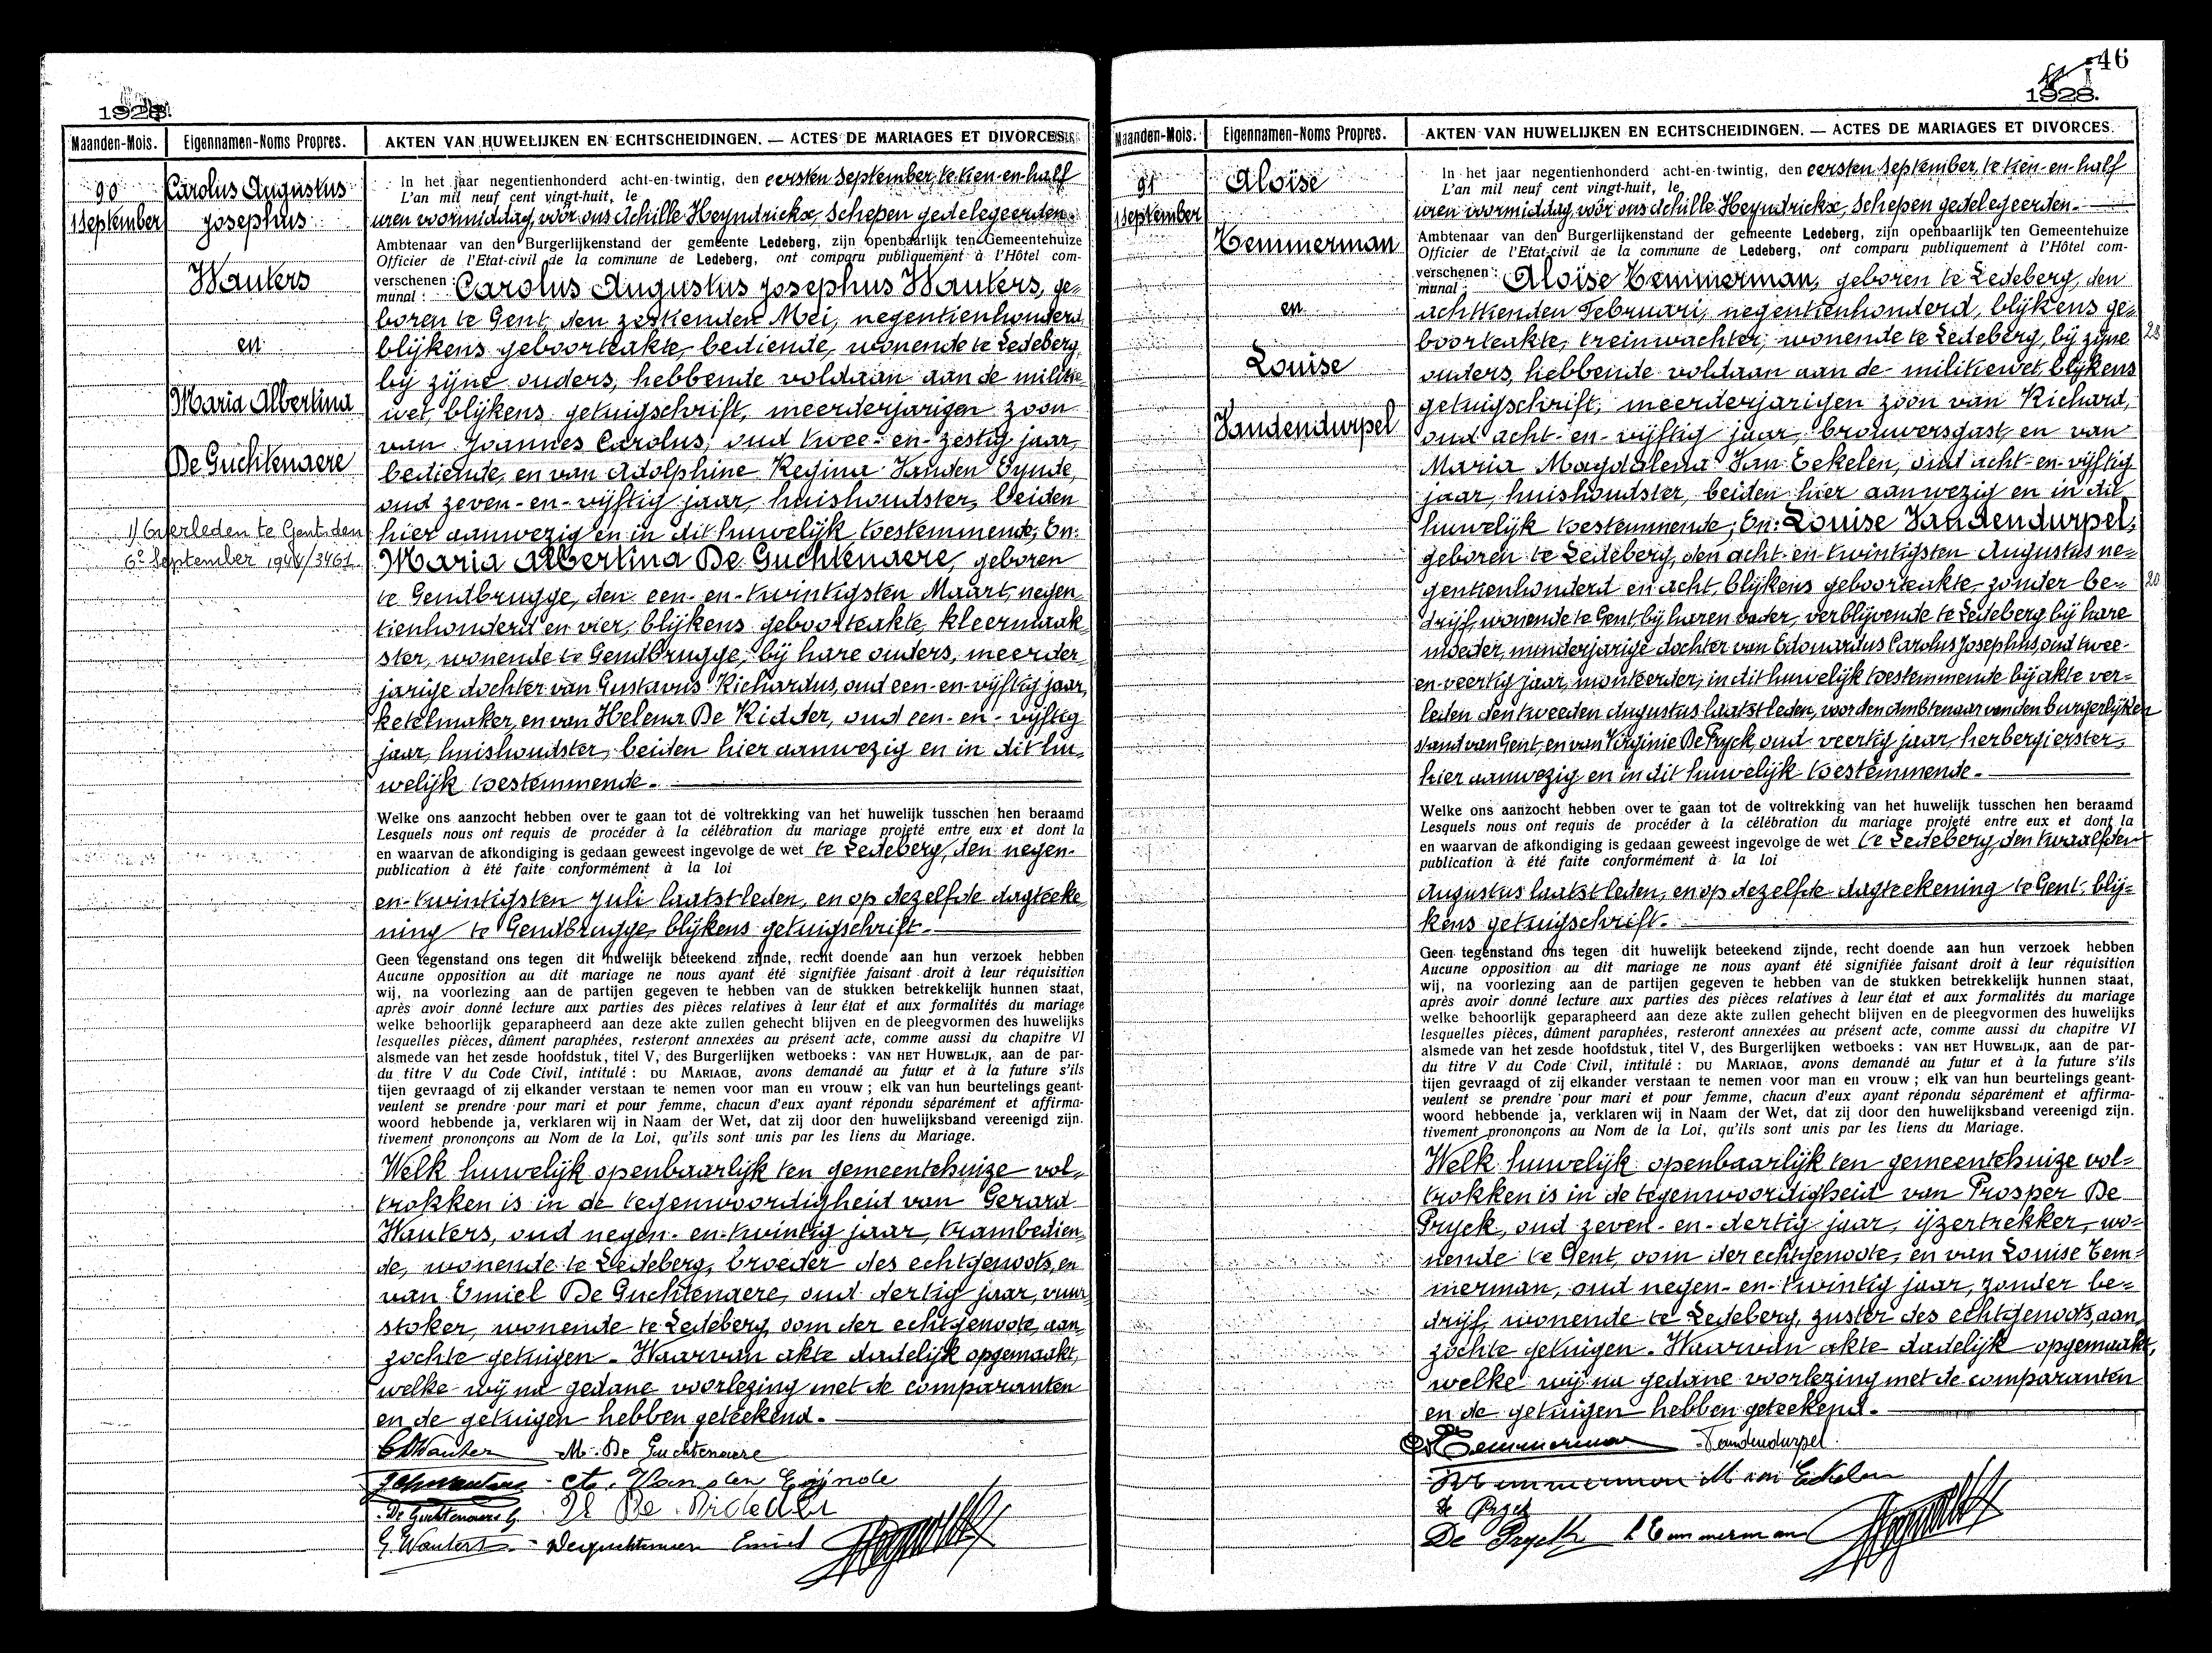 1928.
Maanden-Mois. Eigennamen-Noms Propres. AKTEN VAN HUWELIJKEN EN ECHTSCHEIDINGEN. — ACTES DE MARIAGES ET DIVORCES.
90
1 September
Carolus Augustus
Josephus
Wauters
en
Maria Albertina
De Guchtenaere
1) Overleden te Gent den
6e September 1944/3461.
In het jaar negentienhonderd acht-en-twintig, den eersten September, te tien-en-half
L'an mil neuf cent vingt-huit, le
uren voormiddag, vóór ons Achille Heyndrickx, Schepen gedelegeerden
Ambtenaar van den Burgerlijkenstand der gemeente Ledeberg, zijn openbaarlijk ten Gemeentehuize
Officier de l'Etat-civil de la commune de Ledeberg, ont comparu publiquement à l'Hôtel com-
verschenen : Carolus Augustus Josephus Wauters, ge=
munal :
boren te Gent, den zestienden Mei, negentienhonderd,
blijkens geboorteakte, bediende, wonende te Ledeberg,
bij zijne ouders, hebbende voldaan aan de militie=
wet, blijkens getuigschrift, meerderjarigen zoon
van Joannes Carolus, oud twee-en-zestig jaar,
bediende, en van Adolphine Regina Vanden Eynde,
oud zeven-en-vijftig jaar, huishoudster, beiden
hier aanwezig en in dit huwelijk toestemmende; En:
Maria Albertina De Guchtenaere, geboren
te Gendbrugge, den een-en-twintigsten Maart, negen=
tienhonderd en vier, blijkens geboorteakte, kleermaak=
ster, wonende te Gendbrugge, bij hare ouders, meerder=
jarige dochter van Gustavus Richardus, oud een-en-vijftig jaar,
ketelmaker, en van Helena De Ridder, oud een-en-vijftig
jaar, huishoudster, beiden hier aanwezig en in dit hu=
welijk toestemmende.
Welke ons aanzocht hebben over te gaan tot de voltrekking van het huwelijk tusschen hen beraamd
Lesquels nous ont requis de procéder à la célébration du mariage projeté entre eux et dont la
en waarvan de afkondiging is gedaan geweest ingevolge de wet te Ledeberg, den negen-
publication à été faite conformément à la loi
en-twintigsten Juli laatstleden, en op dezelfde dagteeke=
ning te Gendbrugge, blijkens getuigschrift.
Geen tegenstand ons tegen dit huwelijk beteekend zijnde, recht doende aan hun verzoek hebben
Aucune opposition au dit mariage ne nous ayant été signifiée faisant droit à leur réquisition
wij, na voorlezing aan de partijen gegeven te hebben van de stukken betrekkelijk hunnen staat,
après avoir donné lecture aux parties des pièces relatives à leur état et aux formalités du mariage
welke behoorlijk geparapheerd aan deze akte zullen gehecht blijven en de pleegvormen des huwelijks
lesquelles pièces, dûment paraphées, resteront annexées au présent acte, comme aussi du chapitre VI
alsmede van het zesde hoofdstuk, titel V, des Burgerlijken wetboeks : VAN HET HUWELIJK, aan de par-
du titre V du Code Civil, intitulé : DU MARIAGE, avons demandé au futur et à la future s'ils
tijen gevraagd of zij elkander verstaan te nemen voor man en vrouw ; elk van hun beurtelings geant-
veulent se prendre pour mari et pour femme, chacun d'eux ayant répondu séparément et affirma-
woord hebbende ja, verklaren wij in Naam der Wet, dat zij door den huwelijksband vereenigd zijn.
tivement prononçons au Nom de la Loi, qu'ils sont unis par les liens du Mariage.
Welk huwelijk openbaarlijk ten gemeentehuize vol=
trokken is in de tegenwoordigheid van Gerard
Wauters, oud negen-en-twintig jaar, trambedien=
de, wonende te Ledeberg, broeder des echtgenoots, en
van Emiel De Guchtenaere, oud dertig jaar, vuur=
stoker, wonende te Ledeberg, oom der echtgenoote, aan=
zochte getuigen. Waarvan akte dadelijk opgemaakt,
welke wij na gedane voorlezing met de comparanten
en de getuigen hebben geteekend.
M. De Guchtenaere
Van den Eynde
De Guchtenaere G. De Ridder
G. Wauters Deguchtenaere Emiel
46
1928.
Maanden-Mois. Eigennamen-Noms Propres. AKTEN VAN HUWELIJKEN EN ECHTSCHEIDINGEN. — ACTES DE MARIAGES ET DIVORCES.
91
1 September
Aloïse
Temmerman
en
Louise
Vandendurpel
In het jaar negentienhonderd acht-en-twintig, den eersten September, te tien-en-half
L'an mil neuf cent vingt-huit, le
uren voormiddag, vóór ons Achille Heyndrickx, Schepen gedelegeerden
Ambtenaar van den Burgerlijkenstand der gemeente Ledeberg, zijn openbaarlijk ten Gemeentehuize
Officier de l'Etat-civil de la commune de Ledeberg, ont comparu publiquement à l'Hôtel com-
verschenen : Aloïse Temmerman, geboren te Ledeberg, den
munal :
achttienden Februari, negentienhonderd, blijkens ge=
boorteakte, treinwachter, wonende te Ledeberg, bij zijne
28
ouders, hebbende voldaan aan de militiewet, blijkens
getuigschrift, meerderjarigen zoon van Richard,
oud acht-en-vijftig jaar, brouwersgast, en van
Maria Magdalena Van Eekelen, oud acht-en-vijftig
jaar, huishoudster, beiden hier aanwezig en in dit
huwelijk toestemmende; En: Louise Vandendurpel,
geboren te Ledeberg, den acht-en-twintigsten Augustus ne=
gentienhonderd en acht, blijkens geboorteakte, zonder be=
20
drijf, wonende te Gent, bij haren vader, verblijvende te Ledeberg bij hare
moeder, minderjarige dochter van Edouardus Carolus Josephus, oud twee-
en-veertig jaar, monteerder, in dit huwelijk toestemmende bij akte ver=
leden den tweeden Augustus laatstleden, voor den Ambtenaar van den burgerlijken
stand van Gent, en van Virginie De Pryck, oud veertig jaar, herbergierster,
hier aanwezig en in dit huwelijk toestemmende.
Welke ons aanzocht hebben over te gaan tot de voltrekking van het huwelijk tusschen hen beraamd
Lesquels nous ont requis de procéder à la célébration du mariage projeté entre eux et dont la
en waarvan de afkondiging is gedaan geweest ingevolge de wet te Ledeberg, den twaalfden
publication à été faite conformément à la loi
Augustus laatstleden, en op dezelfde dagteekening te Gent, blij=
kens getuigschrift.
Geen tegenstand ons tegen dit huwelijk beteekend zijnde, recht doende aan hun verzoek hebben
Aucune opposition au dit mariage ne nous ayant été signifiée faisant droit à leur réquisition
wij, na voorlezing aan de partijen gegeven te hebben van de stukken betrekkelijk hunnen staat,
après avoir donné lecture aux parties des pièces relatives à leur état et aux formalités du mariage
welke behoorlijk geparapheerd aan deze akte zullen gehecht blijven en de pleegvormen des huwelijks
lesquelles pièces, dûment paraphées, resteront annexées au présent acte, comme aussi du chapitre VI
alsmede van het zesde hoofdstuk, titel V, des Burgerlijken wetboeks : VAN HET HUWELIJK, aan de par-
du titre V du Code Civil, intitulé : DU MARIAGE, avons demandé au futur et à la future s'ils
tijen gevraagd of zij elkander verstaan te nemen voor man en vrouw ; elk van hun beurtelings geant-
veulent se prendre pour mari et pour femme, chacun d'eux ayant répondu séparément et affirma-
woord hebbende ja, verklaren wij in Naam der Wet, dat zij door den huwelijksband vereenigd zijn.
tivement prononçons au Nom de la Loi, qu'ils sont unis par les liens du Mariage.
Welk huwelijk openbaarlijk ten gemeentehuize vol=
trokken is in de tegenwoordigheid van Prosper De
Pryck, oud zeven-en-dertig jaar, ijzertrekker, wo=
nende te Gent, oom der echtgenoote, en van Louise Tem=
merman, oud negen-en-twintig jaar, zonder be=
drijf, wonende te Ledeberg, zuster des echtgenoots, aan=
zochte getuigen. Waarvan akte dadelijk opgemaakt,
welke wij na gedane voorlezing met de comparanten
en de getuigen hebben geteekend.
Temmerman Vandendurpel
M van Eekelen
De Pryck
De Pryck L Temmerman